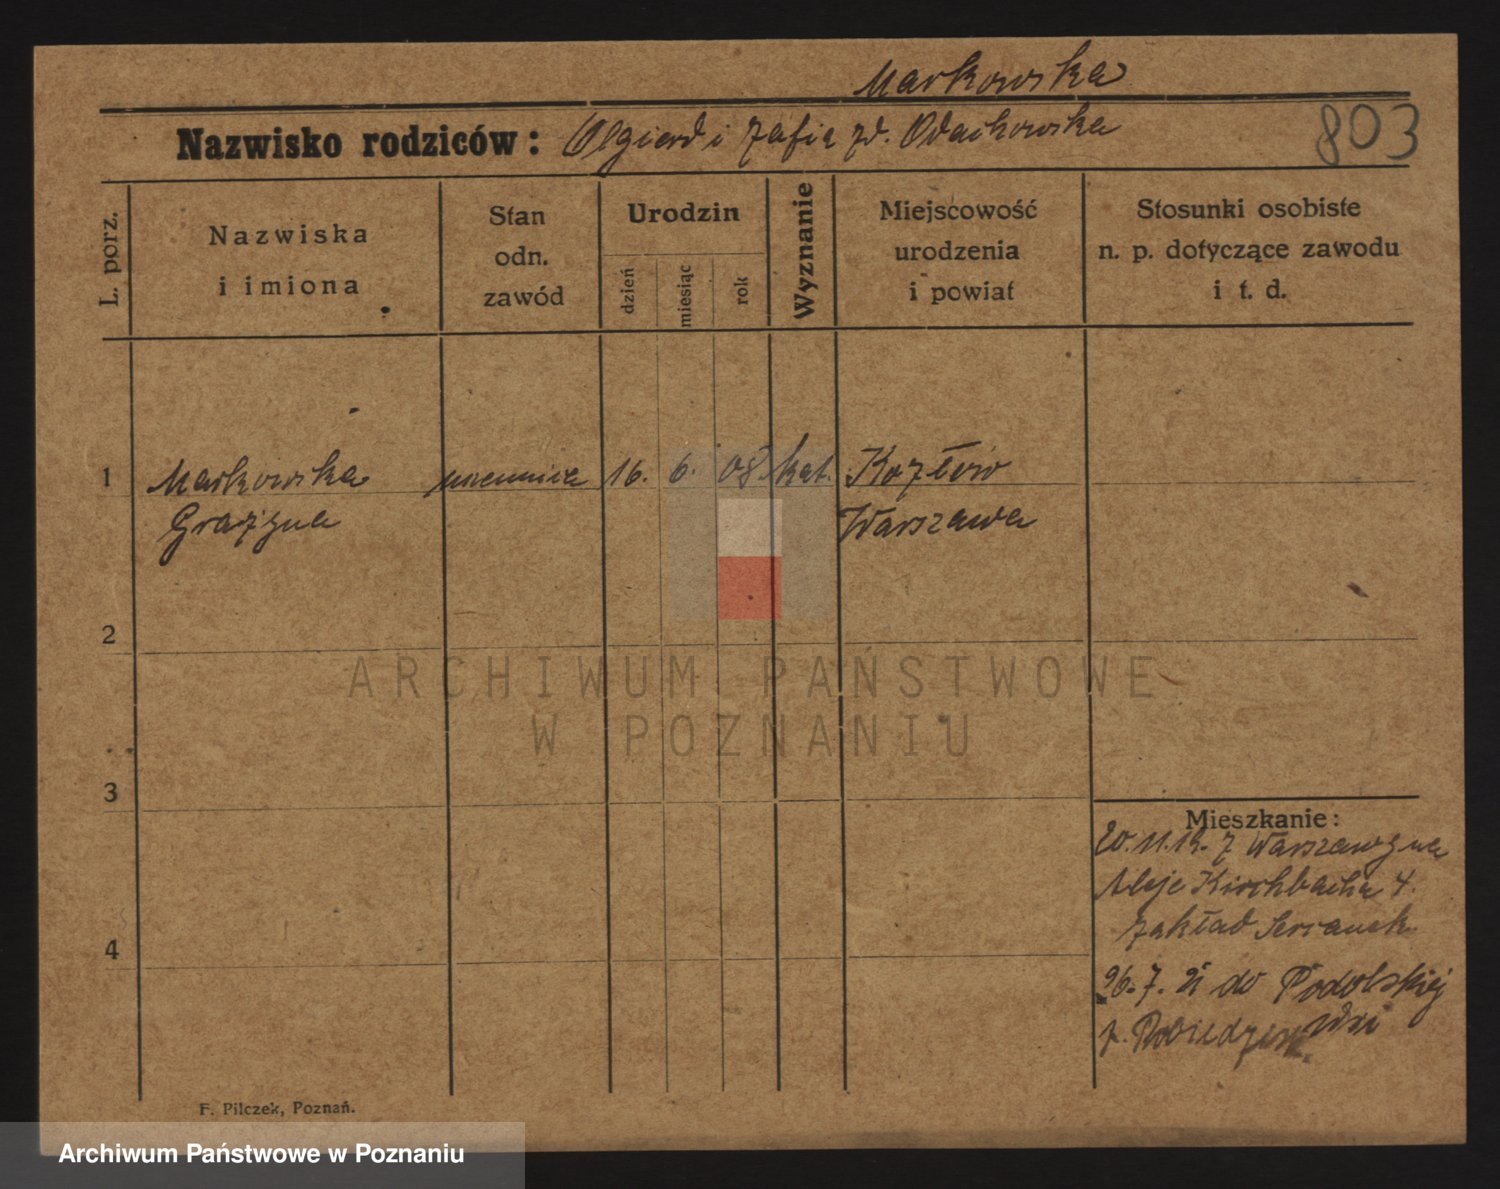 Markowska
Nazwisko rodziców: Olgierd i Zofia zd. Odachowska
803
L. porz.
Nazwiska
i imiona
Stan
odn.
zawód
Urodzin
dzień
miesiąc
rok
Wyznanie
Miejscowość
urodzenia
i powiat
Stosunki osobiste
n. p. dotyczące zawodu
i t. d.
1
Markowska uczennica 16. 6. 08 kat. Kozłów
Grażyna Warszawa
2
ARCHIWUM PAŃSTWOWE
W POZNANIU
3
Mieszkanie:
z Warszawy na
Aleje Kirchbacha 4.
zakład Sercanek
26.7. 21 do Podolskiej
Wsi
4
F. Pilczek, Poznań.
Archiwum Państwowe w Poznaniu